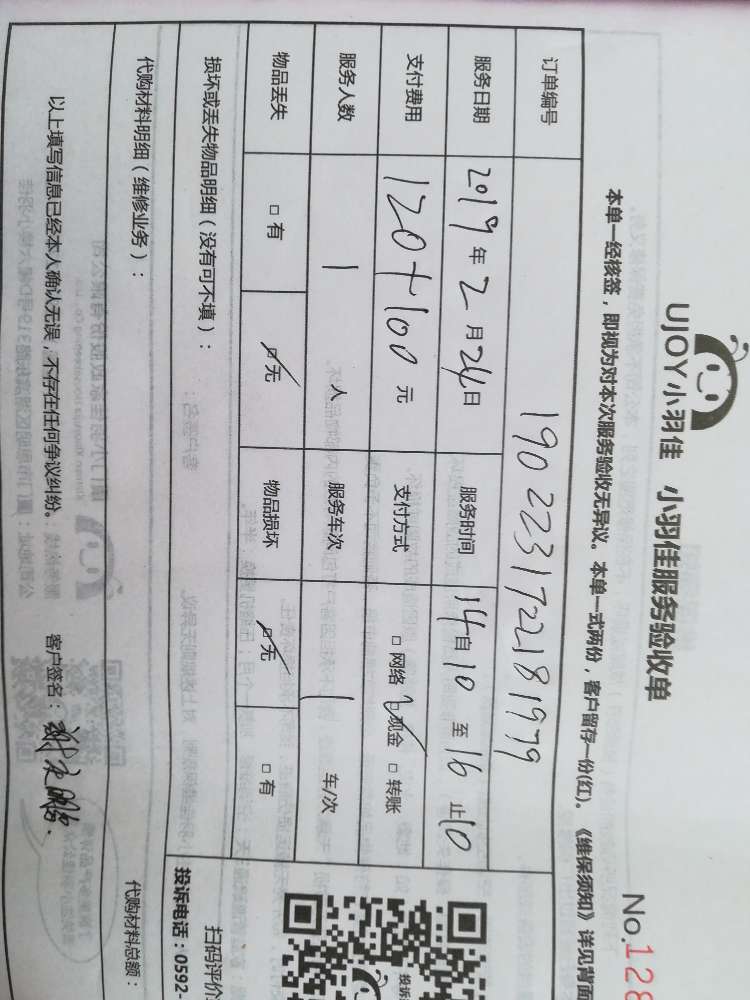 UJOY小羽佳 小羽佳服务验收单
No.128
本单一经核签，即视为对本次服务验收无异议。本单一式两份，客户留存一份(红)。《维保须知》详见背面
订单编号 190223172181979
服务日期 2019年2月24日 服务时间 14自10至16止10
支付费用 120+100元 支付方式 □网络 ☑现金 □转账
服务人数 1人 服务车次 1车/次
物品丢失 □有 ☑无 物品损坏 ☑无 □有
损坏或丢失物品明细（没有可不填）：
扫码评价
代购材料明细（维修业务）：
投诉电话：0592-
代购材料总额：
以上填写信息已经本人确认无误，不存在任何争议纠纷。 客户签名：